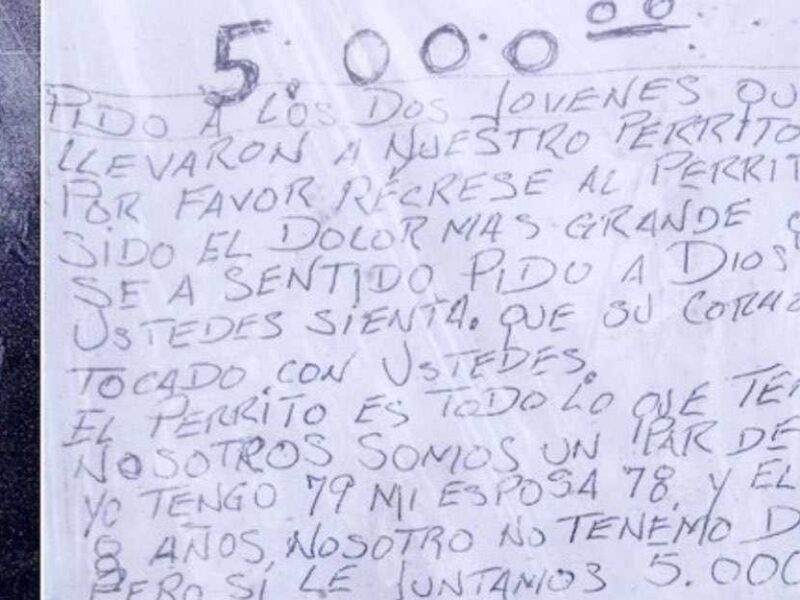 5.000 00
PIDO A LOS DOS JOVENES QU
LLEVARON A NUESTRO PERRITO
POR FAVOR RECRESE AL PERRIT
SIDO EL DOLOR MAS GRANDE
SE A SENTIDO PIDO A DIOS
USTEDES SIENTA. QUE SU CORAZ
TOCADO CON USTEDES.
EL PERRITO ES TODO LO QUE TEN
NOSOTROS SOMOS UN PAR DE
YO TENGO 79 MI ESPOSA 78, Y EL
8 AÑOS, NOSOTRO NO TENEMO D
PERO SI LE JUNTAMOS 5.000